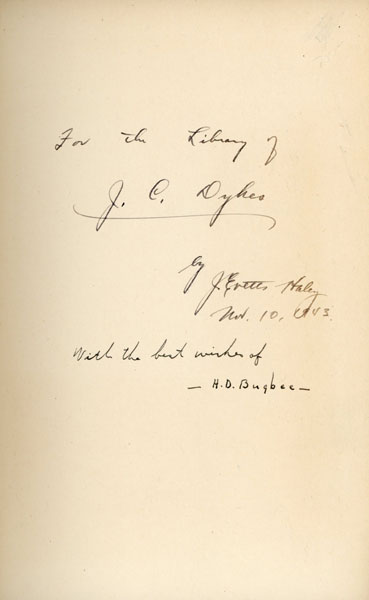 For the Library of
J. C. Dykes
by
J. Evetts Haley
Nov. 10, 1943.
With the best wishes of
— H. D. Bugbee —